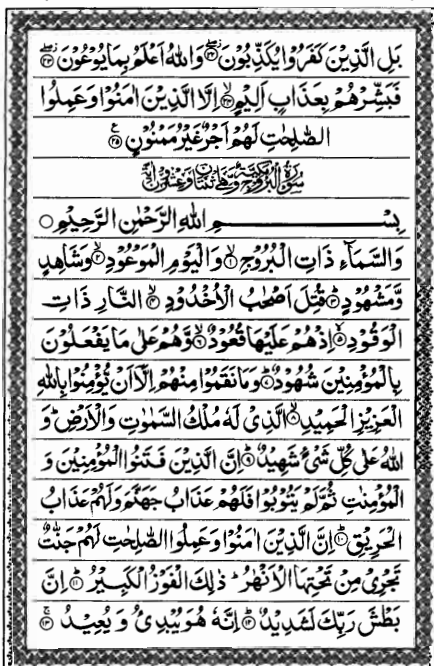 بَلِ الَّذِیْنَ كَفَرُوْا یُكَذِّبُوْنَ ﴿۲۲﴾ وَاللّٰهُ اَعْلَمُ بِمَا یُوْعُوْنَ ﴿۲۳﴾
فَبَشِّرْهُمْ بِعَذَابٍ اَلِیْمٍ ﴿۲۴﴾ اِلَّا الَّذِیْنَ اٰمَنُوْا وَعَمِلُوا
الصّٰلِحٰتِ لَهُمْ اَجْرٌ غَیْرُ مَمْنُوْنٍ ﴿۲۵﴾
سُوْرَةُ الْبُرُوْجِ مَكِّیَّةٌ وَّهِیَ اثْنَتَانِ وَعِشْرُوْنَ اٰیَةً
بِسْمِ اللّٰهِ الرَّحْمٰنِ الرَّحِیْمِ ○
وَالسَّمَآءِ ذَاتِ الْبُرُوْجِ ﴿۱﴾ وَالْیَوْمِ الْمَوْعُوْدِ ﴿۲﴾ وَشَاهِدٍ
وَّمَشْهُوْدٍ ﴿۳﴾ قُتِلَ اَصْحٰبُ الْاُخْدُوْدِ ﴿۴﴾ النَّارِ ذَاتِ
الْوَقُوْدِ ﴿۵﴾ اِذْ هُمْ عَلَیْهَا قُعُوْدٌ ﴿۶﴾ وَّهُمْ عَلٰی مَا یَفْعَلُوْنَ
بِالْمُؤْمِنِیْنَ شُهُوْدٌ ﴿۷﴾ وَمَا نَقَمُوْا مِنْهُمْ اِلَّاۤ اَنْ یُّؤْمِنُوْا بِاللّٰهِ
الْعَزِیْزِ الْحَمِیْدِ ﴿۸﴾ الَّذِیْ لَهٗ مُلْكُ السَّمٰوٰتِ وَالْاَرْضِ ؕ وَ
اللّٰهُ عَلٰی كُلِّ شَیْءٍ شَهِیْدٌ ﴿۹﴾ اِنَّ الَّذِیْنَ فَتَنُوا الْمُؤْمِنِیْنَ وَ
الْمُؤْمِنٰتِ ثُمَّ لَمْ یَتُوْبُوْا فَلَهُمْ عَذَابُ جَهَنَّمَ وَلَهُمْ عَذَابُ
الْحَرِیْقِ ﴿۱۰﴾ اِنَّ الَّذِیْنَ اٰمَنُوْا وَعَمِلُوا الصّٰلِحٰتِ لَهُمْ جَنّٰتٌ
تَجْرِیْ مِنْ تَحْتِهَا الْاَنْهٰرُ ؕ ذٰلِكَ الْفَوْزُ الْكَبِیْرُ ﴿۱۱﴾ اِنَّ
بَطْشَ رَبِّكَ لَشَدِیْدٌ ﴿۱۲﴾ اِنَّهٗ هُوَ یُبْدِئُ وَیُعِیْدُ ﴿۱۳﴾